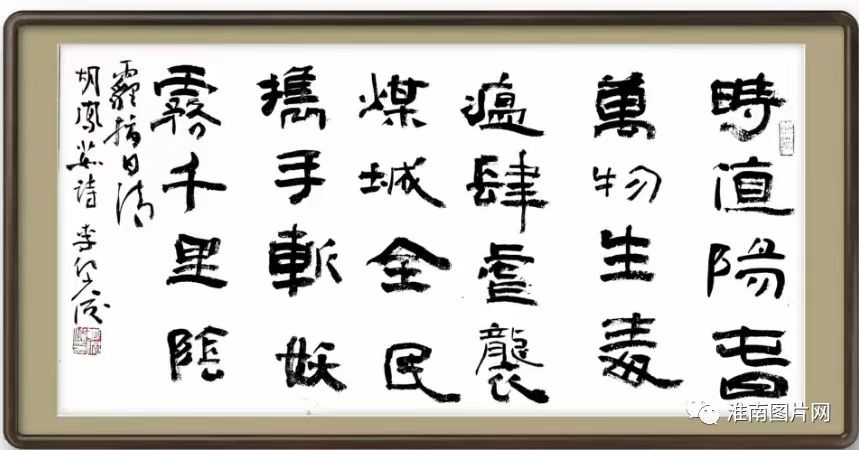 時值陽旾
萬物生毒
瘟肆虐襲
煤城全民
攜手斬妖
霧千里陰
霾指日清
胡鳳茹诗 李
淮南图片网